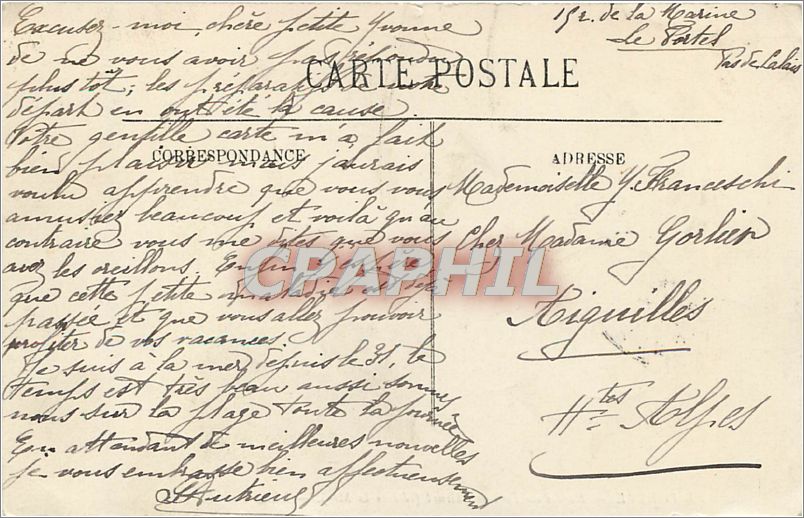 Excusez-moi, chère petite Yvonne
de ne vous avoir pas répondu
plus tôt; les préparatifs de mon
départ en ont été la cause.
Votre gentille carte m'a fait
bien plaisir mais j'aurais
voulu apprendre que vous vous
amusiez beaucoup et voilà qu'au
contraire vous me dites que vous
avez les oreillons. Enfin j'espère
que cette petite maladie est
passée et que vous allez pouvoir
profiter de vos vacances.
Je suis à la mer depuis le 31, le
temps est très beau aussi sommes
nous sur la plage toute la journée
En attendant de meilleures nouvelles
je vous embrasse bien affectueusement
CARTE POSTALE
CORRESPONDANCE
ADRESSE
15 r. de la Marine
Le Portel
Pas de Calais
Mademoiselle Y. Franceschi
Chez Madame Gorlier
Aiguilles
Htes Alpes
CPAPHIL